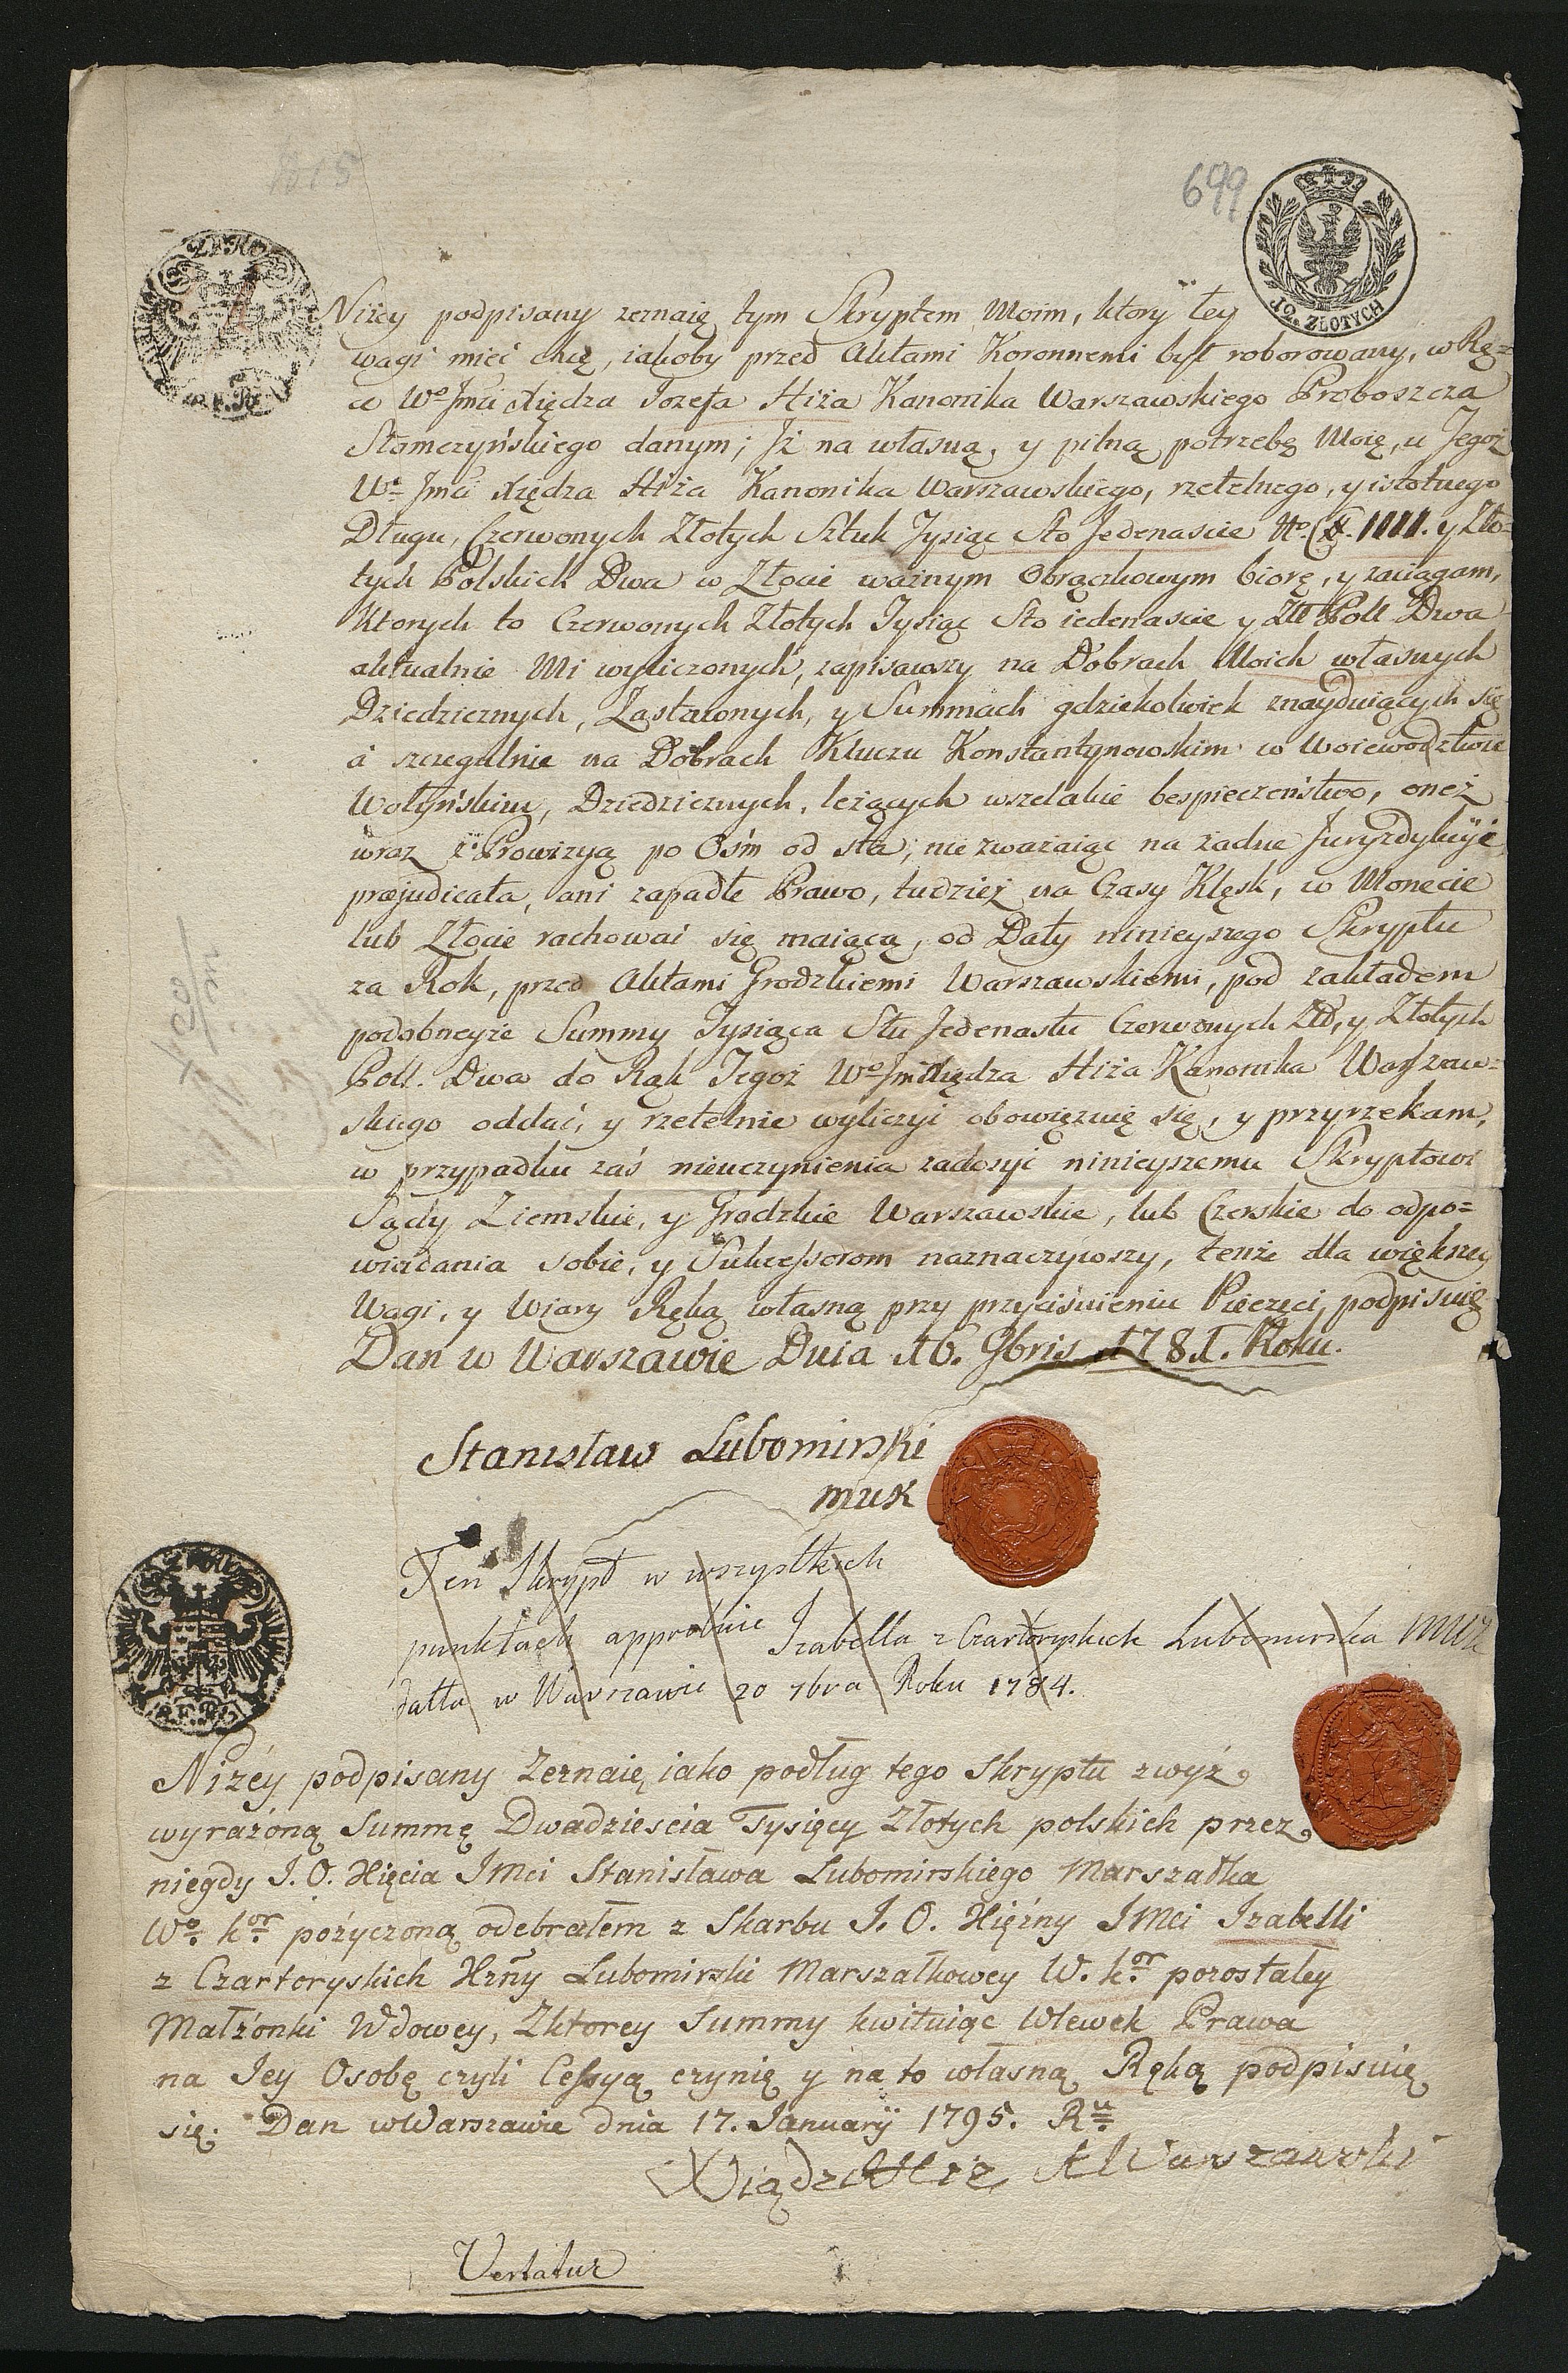 699
12. ZŁOTYCH
Niżey podpisany zeznaię tym Skryptem Moim, ktory tey
wagi mieć chcę, iakoby przed Aktami Koronnemi był roborowany, w Rę=
ce Wo Jmci Xiędza Jozefa Hiża Kanonika Warszawskiego Proboszcza
Słomczyńskiego danym; Jż na własną, y pilną potrzebę Moię, u Jegoż
Wo Jmci Xiędza Hiża Kanonika Warszawskiego, rzetelnego, y istotnego
Długu, Czerwonych Złotych Sztuk Tysiąc Sto Jedenascie No. 1111. y Zło=
tych Polskich Dwa w Złocie ważnym Obrączkowym biorę, y zaciągam,
Ktorych to Czerwonych Złotych Tysiąc Sto iedenascie y Złł Poll Dwa
aktualnie Mi wyliczonych, zapisawszy na Dobrach Moich własnych
Dziedzicznych, Zastawnych, y Summach gdziekolwiek znayduiących się
á szczegulnie na Dobrach Kluczu Konstantynowskim w Woiewodztwie
Wołyńskim, Dziedzicznych, leżących wszelakie bespieczeństwo, oneż
wraz z Prowizyą po Ośm od sta, nie zważaiąc na żadne Juryzdykcyie
præjudicata, ani zapadłe Prawo, tudzież na Czasy Klęsk, w Monecie
lub Złocie rachować się maiącą, od Daty ninieyszego Skryptu
za Rok, przed Aktami Grodzkiemi Warszawskiemi, pod zakładem
podobneyże Summy Tysiąca Stu Jedenastu Czerwonych Złł, y Złotych
Poll. Dwa do Rąk Jegoż Wo Jmci Xiędza Hiża Kanonika Warszaw=
skiego oddać, y rzetelnie wyliczyć obowięzuię się, y przyrzekam,
w przypadku zaś nieuczynienia zadosyć ninieyszemu Skryptowi
Sądy Ziemskie, y Grodzkie Warszawskie, lub Czerskie do odpo=
wiadania sobie, y Sukcessorom naznaczywszy, tenże dla większey
Wagi, y Wiary Ręką własną przy przyciśnieniu Pieczęci, podpisuię
Dan w Warszawie Dnia 16. 9bris 1781. Roku.
Stanisław Lubomirski
MWK
Ten Skrypt w wszystkich
punktach approbuie Izabella z Czartoryskich Lubomirska MWK
datta w Warszawie 20 7bra Roku 1784.
Niżéy podpisany Zeznaię, iako podług tego Skryptu zwyż
wyrażoną Summę Dwadzieścia Tysięcy Złotych polskich przez
niegdy J. O. Xięcia JMci Stanisława Lubomirskiego Marszałka
Wo. kor. pożyczoną odebrałem z Skarbu J. O. Xiężny JMci Izabelli
z Czartoryskich Xżny Lubomirski Marszałkowey W. kor. pozostałey
Małżonki Wdowey, Z ktorey Summy kwituiąc Wlewek Prawa
na Jey Osobę czyli Cessyą czynię y na to własną Ręką podpisuię
się. Dan w Warszawie dnia 17. Januarij 1795. Ru
Xiądz Hiż K Warszawski
Vertatur